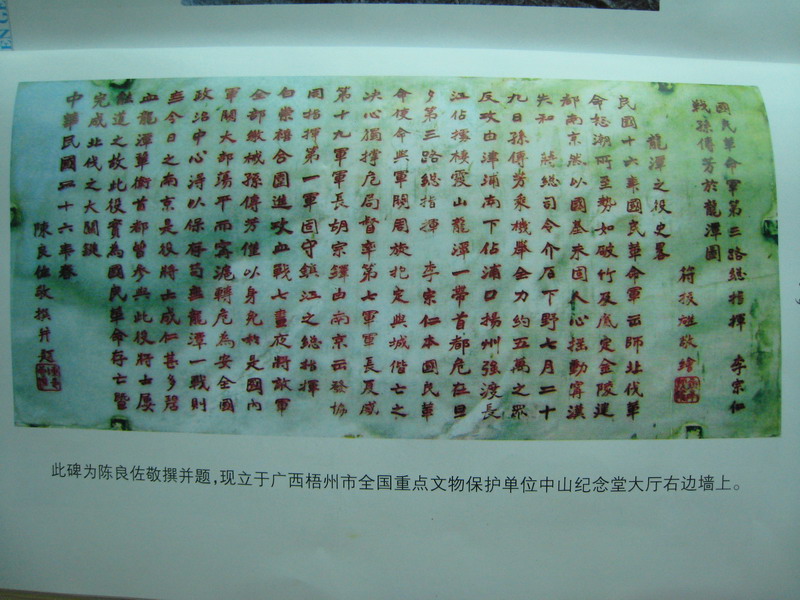 EN GE
國民革命軍第三路總指揮 李宗仁
戰孫傳芳於龍潭圖
符技磋敬繪
龍潭之役史畧
民國十六年國民革命軍云師北伐革
命怒潮所至勢如破竹及底定金陵建
都南京然以國基未固人心搖動寧漢
失和 蔣總司令介石下野七月二十
九日孫傳芳乘機舉全力約五萬之眾
反攻由津浦南下佔浦口揚州強渡長
江佔擾棲霞山龍潭一帶首都危在旦
夕第三路總指揮 李宗仁本國民革
命使命與軍閥周旋抱定與城偕亡之
決心獨撑危局督率第七軍軍長夏威
第十九軍軍長胡宗鐸由南京云發協
同指揮第一軍固守鎮江之總指揮
白崇禧合圍進攻血戰七晝夜將敵軍
全部繳械孫傳芳僅以身免於是國內
軍閥大部蕩平而寧滬轉危為安全國
政治中心得以保存苟無龍潭一戰則
無今日之南京是役將士成仁甚多碧
血龍潭華衛首都曾參與此役將士屢
道之故此役實為國民革命存亡暨
完成北伐之大關鍵
中華民國二十六年春
陳良佐敬撰并題
此碑为陈良佐敬撰并题，现立于广西梧州市全国重点文物保护单位中山纪念堂大厅右边墙上。